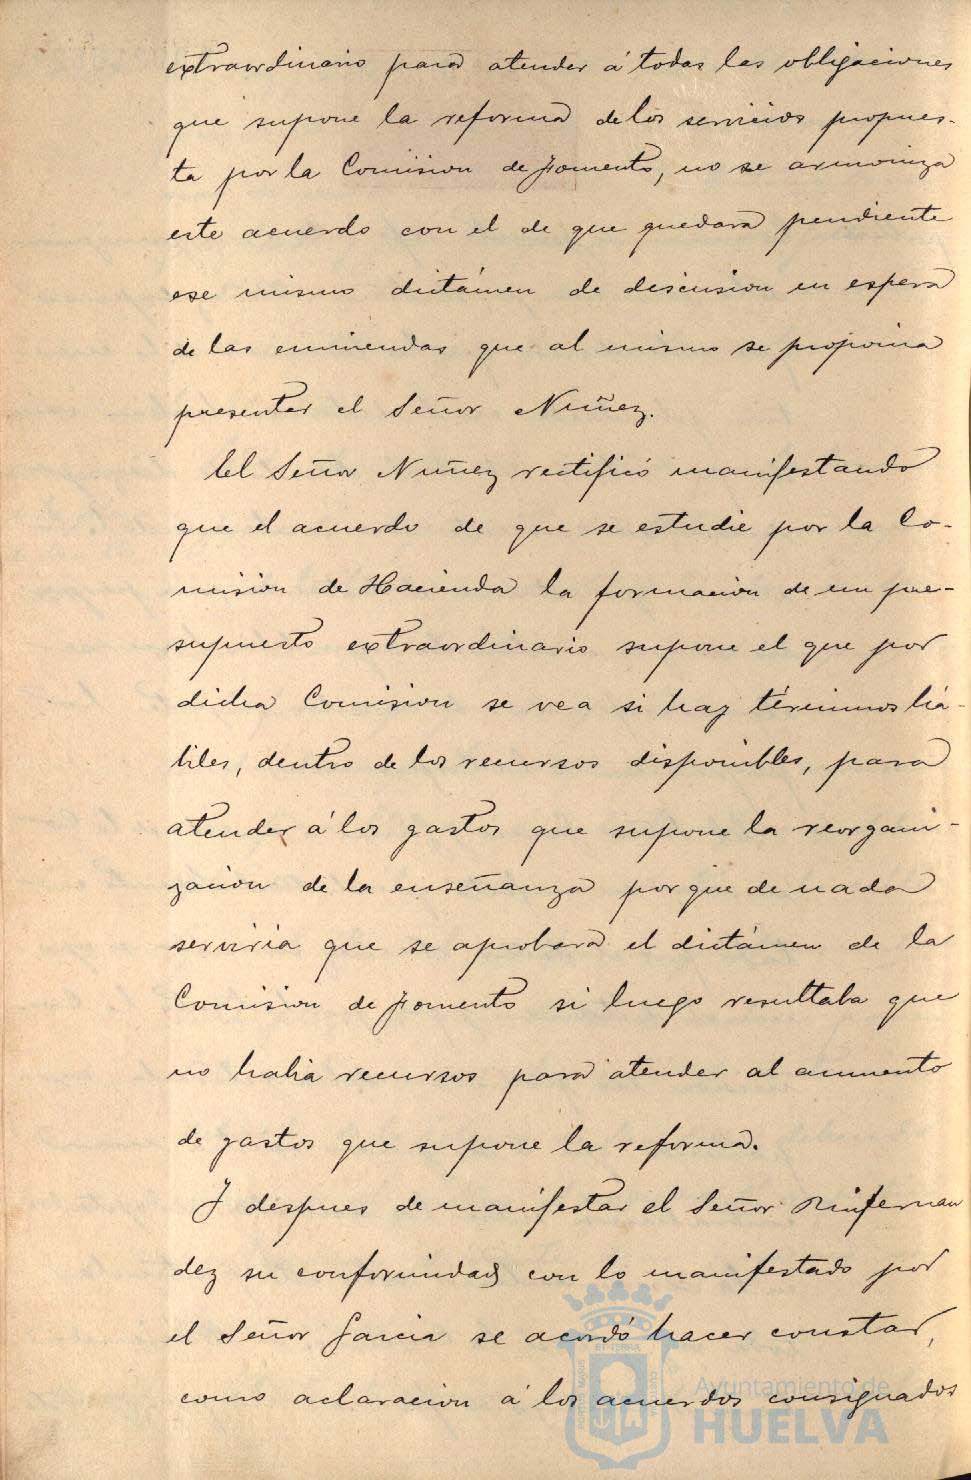 extraordinario para atender á todas las obligaciones
que supone la reforma de los servicios propues-
ta por la Comision de Fomento, no se armoniza
este acuerdo con el de que quedara pendiente
ese mismo dictámen de discusion en espera
de las enmiendas que al mismo se proponia
presentar el Señor Nuñez.
El Señor Nuñez rectificó manifestando
que el acuerdo de que se estudie por la Co-
mision de Hacienda la formacion de un pre-
supuesto extraordinario supone el que por
dicha Comision se vea si hay términos há-
biles, dentro de los recursos disponibles, para
atender á los gastos que supone la reorgani-
zacion de la enseñanza porque de nada
serviria que se aprobara el dictámen de la
Comision de Fomento si luego resultaba que
no habia recursos para atender al aumento
de gastos que supone la reforma.
Y despues de manifestar el Señor Ruifernan
dez su conformidad con lo manifestado por
el Señor Garcia se acordó hacer constar,
como aclaracion á los acuerdos consignados
Ayuntamiento de
HUELVA